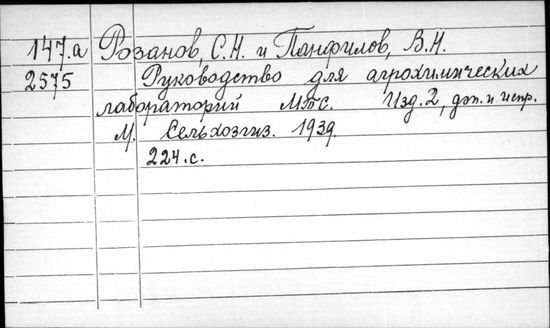 147.a Розанов, С.Н. и Панфилов, В.Н.
2575 Руководство для агрохимических
лабораторий МТС. Изд. 2, доп. и испр.
М. Сельхозгиз. 1939
224.с.